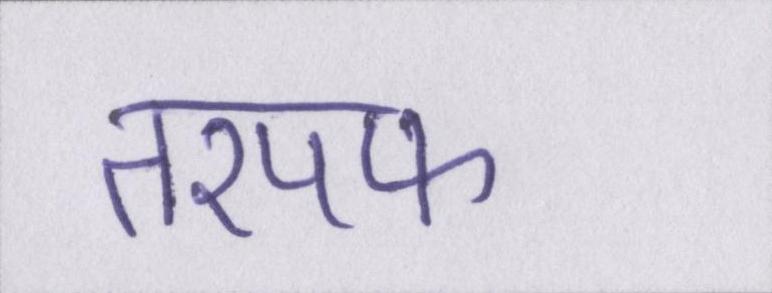 तरपफ